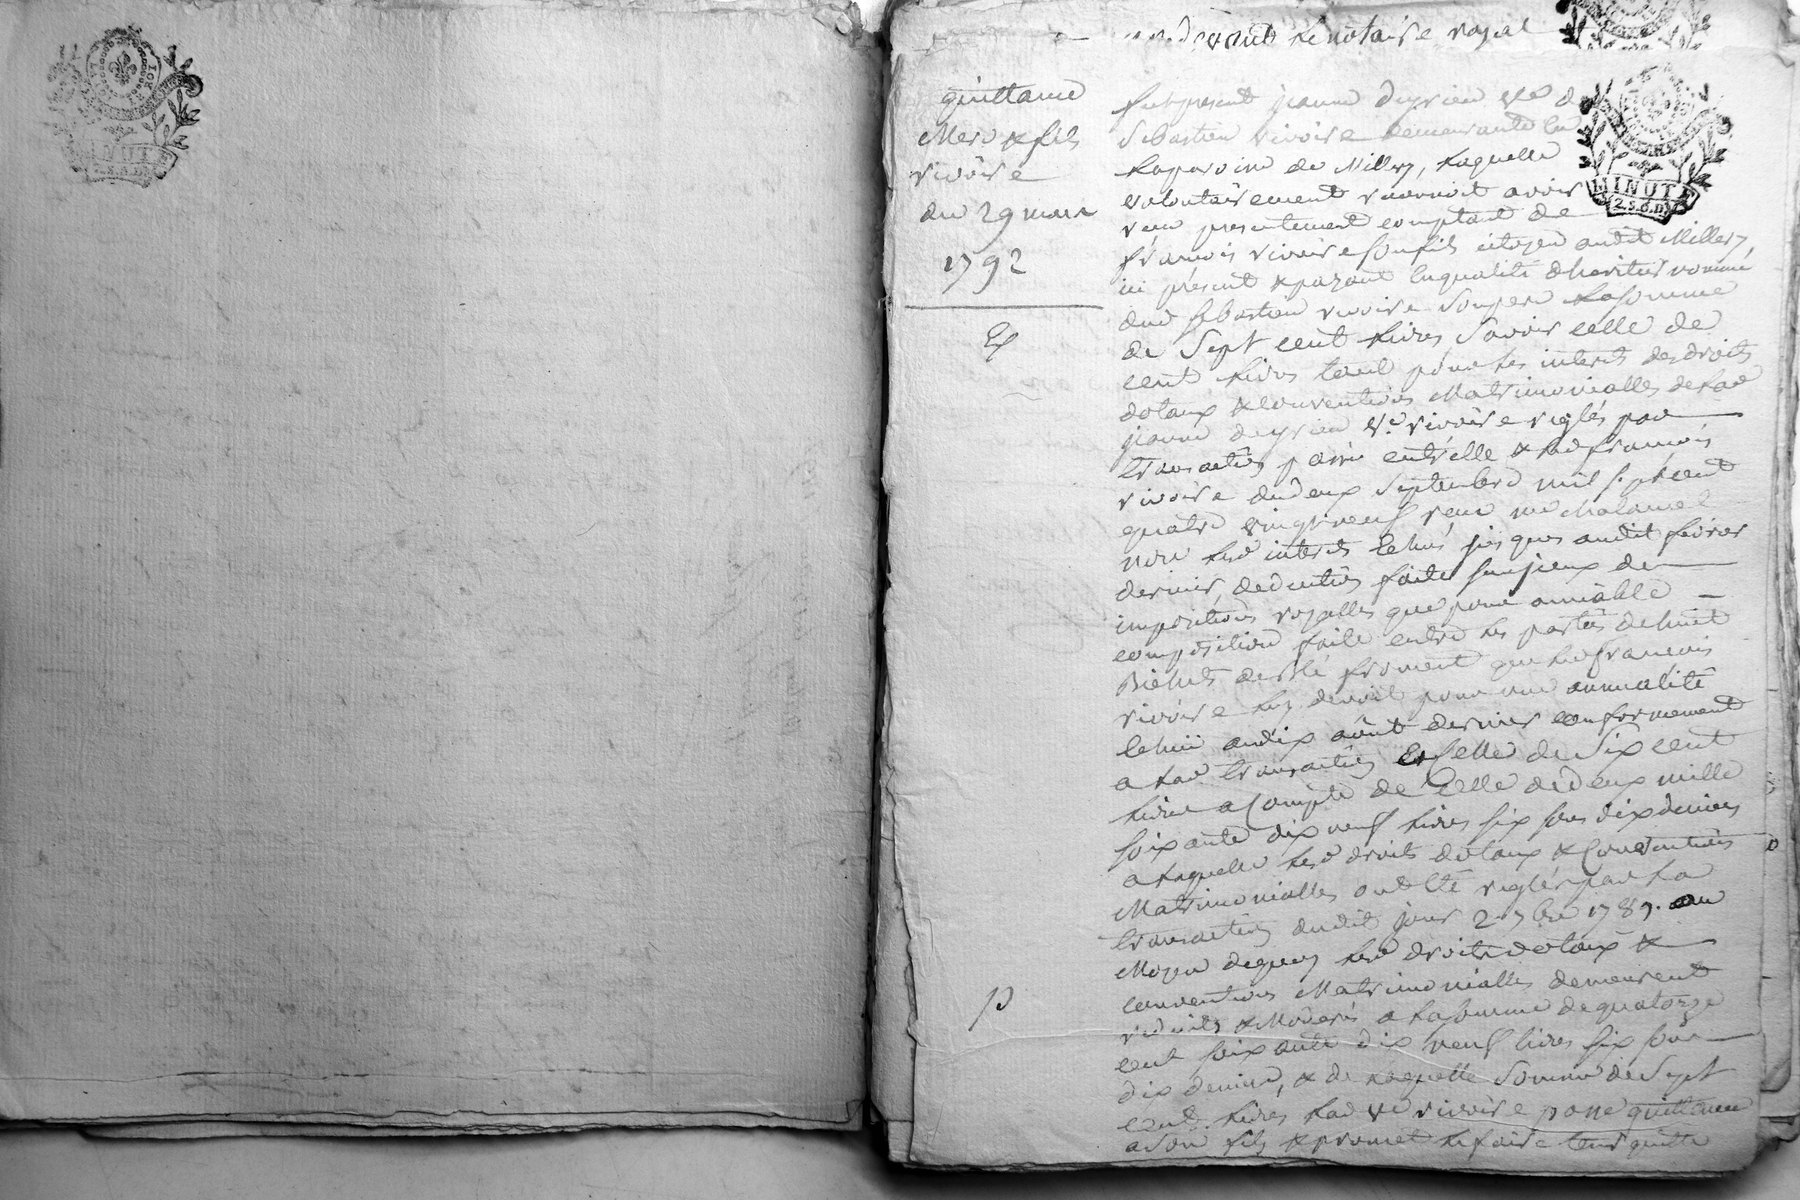 LA LOI
LE ROI
MINUTE
2.S.6.D.
pardevant le notaire royal
quittance
Mere & fils
vivoire
du 29 mars
1792
fut present jeanne deyrieu ve de
Sebastien vivoire demeurante en
la paroisse de Millery, laquelle
volontairement reconnoit avoir
reçu presentement comptant de
françois vivoire son fils citoyen audit Millery,
ici présent & payant en qualité d'heritier nommé
dud Sebastien vivoire son pere la somme
de Sept cent livres Savoir celle de
cent livres tant pour les interets des droits
dotaux & conventions Matrimonialles de lad
jeanne deyrieu ve vivoire reglés par
transaction passée entr'elle & led françois
vivoire du deux Septembre mil sept cent
quatre vingt neuf recu me
lesd interets echus jusques audit
dernier, deduction faite sur iceux de
impositions royalles que pour amiable
composition faite entre les parties de huit
Bichets de Blé froment que led françois
vivoire luy devoit pour une annualité
echue au dix août dernier conformement
a lad transaction Et Celle de Six cent
livres a Compte de Celle de deux mille
soixante dix neuf livres six sous dix deniers
a laquelle lesd droits dotaux & Conventions
Matrimonialles ont été reglés par la
transaction dudit jour 2 7bre 1789. au
Moyen de quoy lesd droits dotaux &
conventions Matrimonialles demeurent
reduits & Moderés a la somme de quatorze
cent soixante dix neuf livres six sous
dix deniers, & de laquelle Somme de Sept
cent livres lad ve vivoire passe quittance
a son fils & promet le faire tenir quitte